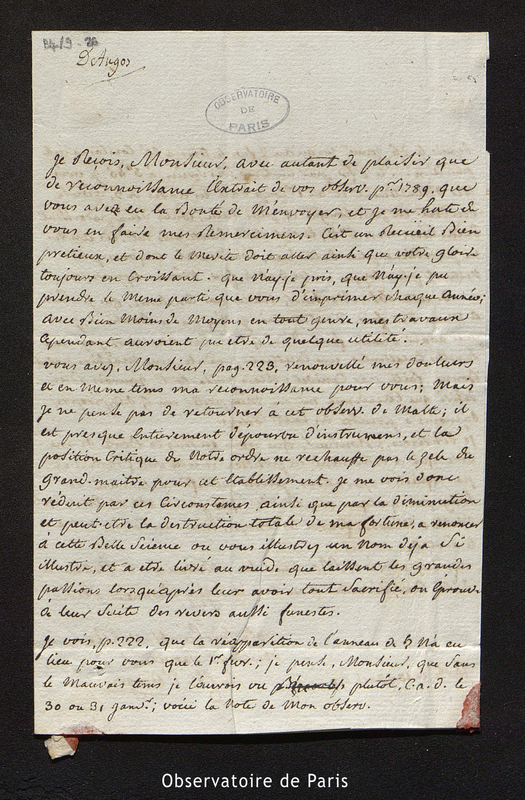 B4/9 - 26
D'Angos
OBSERVATOIRE
DE
PARIS
Je Reçois, Monsieur, avec autant de plaisir que
de reconnoissance l'Extrait de vos observ. pr. 1789, que
vous avez eu la Bonté de M'envoyer, et je me hate de
vous en faire mes Remercimens. C'est un Recüeil Bien
pretieux, et dont le Merite doit aller ainsi que votre gloire
toujours en Croissant. que N'ay-je pris, que N'ay-je pu
prendre le Meme parti que vous d'imprimer chaque année;
avec Bien Moins de Moyens en tout genre, mes travaux
Cependant auroient pu etre de quelque utilité.
vous avez, Monsieur, pag. 223, renouvellé mes douleurs
et en Meme tems ma reconnoissance pour vous; Mais
je ne pense pas de retourner a cet observ. de Malte; il
est presque Entierement dépourvu d'instrumens, et la
position Critique de Notre ordre ne rechauffe pas le zele du
grand-maitre pour cet Etablissement. je me vois donc
réduit par ces Circonstances ainsi que par la diminution
et peut etre la destruction totale de ma fortune, a renoncer
à cette Belle Science ou vous illustrez un Nom deja Si
illustre, et a etre livré au vuide que laissent les grandes
passions lorsqu'après leur avoir tout Sacrifié, on Eprouve
à leur Suite des revers aussi funestes.
Je vois, p. 222, que la réapparition de l'anneau de ♄ N'a eu
lieu pour vous que le 1er fevr.; je pense, Monsieur, que Sans
le Mauvais tems je l'aurois vu plutôt, C. a. d. le
30 ou 31 janvr.; voicii la Note de Mon observ.
Observatoire de Paris